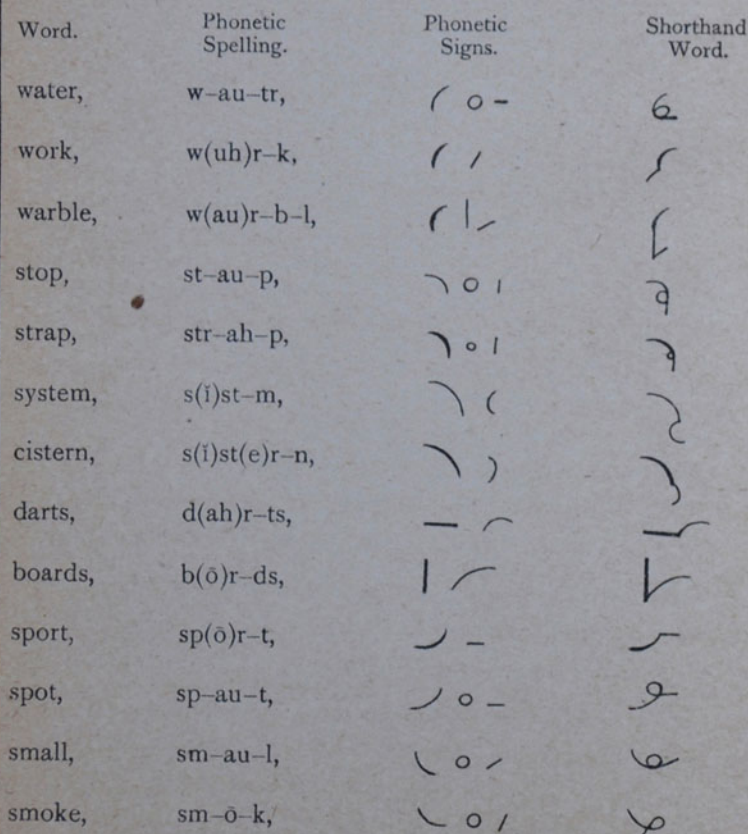 Word. Phonetic Spelling. Phonetic Signs. Shorthand Word.
water, w–au–tr,
work, w(uh)r–k,
warble, w(au)r–b–l,
stop, st–au–p,
strap, str–ah–p,
system, s(ĭ)st–m,
cistern, s(ĭ)st(e)r–n,
darts, d(ah)r–ts,
boards, b(ō)r–ds,
sport, sp(ō)r–t,
spot, sp–au–t,
small, sm–au–l,
smoke, sm–ō–k,